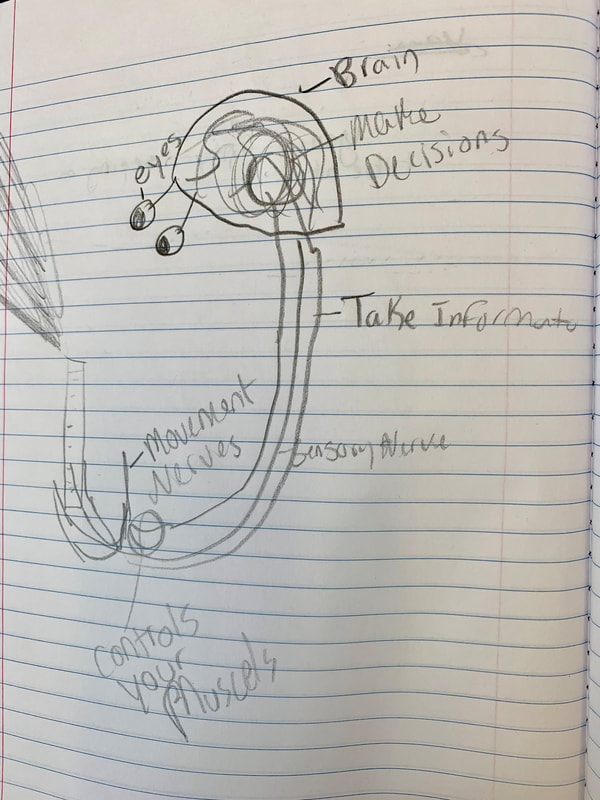 Brain
Make
Decisions
eyes
Take Informato
Movement
Nerves
Sensory Nerve
Controls
your
Muscels